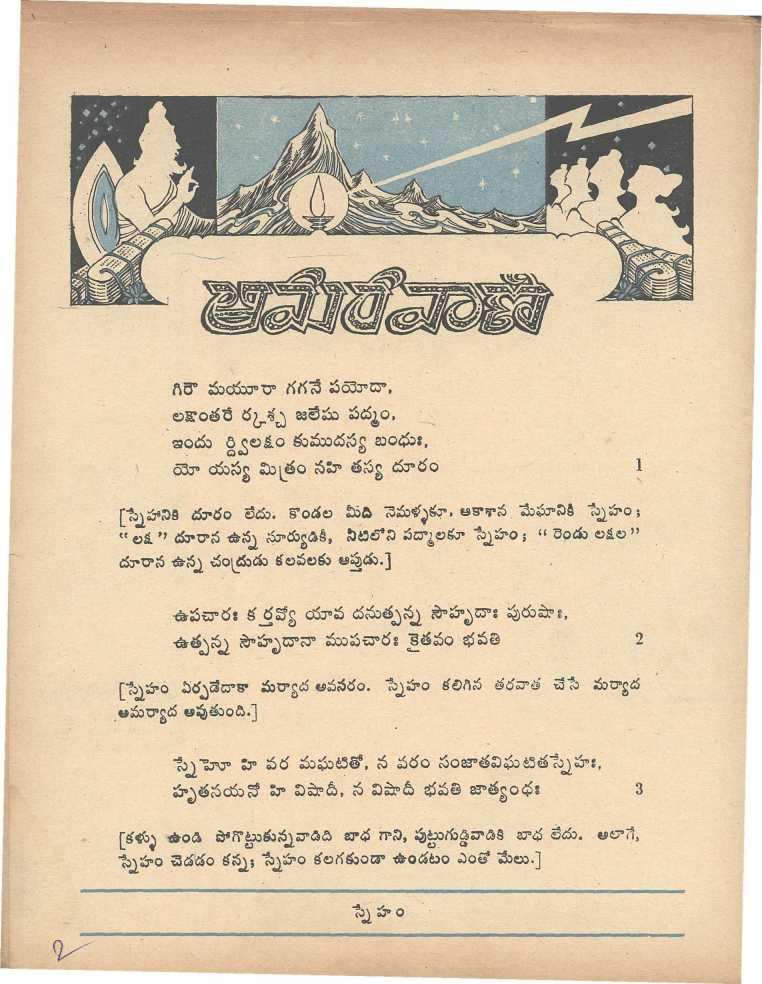 అమరవాణి
గిరౌ మయూరా గగనే పయోదా,
లక్షాంతరే ర్కశ్చ జలేషు పద్మం,
ఇందు ర్ద్విలక్షం కుముదస్య బంధుః,
యో యస్య మిత్రం నహి తస్య దూరం 1
[స్నేహానికి దూరం లేదు. కొండల మీది నెమళ్ళకూ, ఆకాశాన మేఘానికి స్నేహం;
“ లక్ష ” దూరాన ఉన్న సూర్యుడికీ, నీటిలోని పద్మాలకూ స్నేహం; “ రెండు లక్షల ”
దూరాన ఉన్న చంద్రుడు కలవలకు ఆప్తుడు.]
ఉపచారః క ర్తవ్యో యావ దనుత్పన్న సౌహృదాః పురుషాః,
ఉత్పన్న సౌహృదానా ముపచారః కైతవం భవతి 2
[స్నేహం ఏర్పడేదాకా మర్యాద అవసరం. స్నేహం కలిగిన తరవాత చేసే మర్యాద
అమర్యాద అవుతుంది.]
స్నేహో హి వర మఘటితో, న వరం సంజాతవిఘటితస్నేహః,
హృతనయనో హి విషాదీ, న విషాదీ భవతి జాత్యంధః 3
[కళ్ళు ఉండి పోగొట్టుకున్నవాడిది బాధ గాని, పుట్టుగుడ్డివాడికి బాధ లేదు. అలాగే,
స్నేహం చెడడం కన్న; స్నేహం కలగకుండా ఉండటం ఎంతో మేలు.]
స్నేహం
2